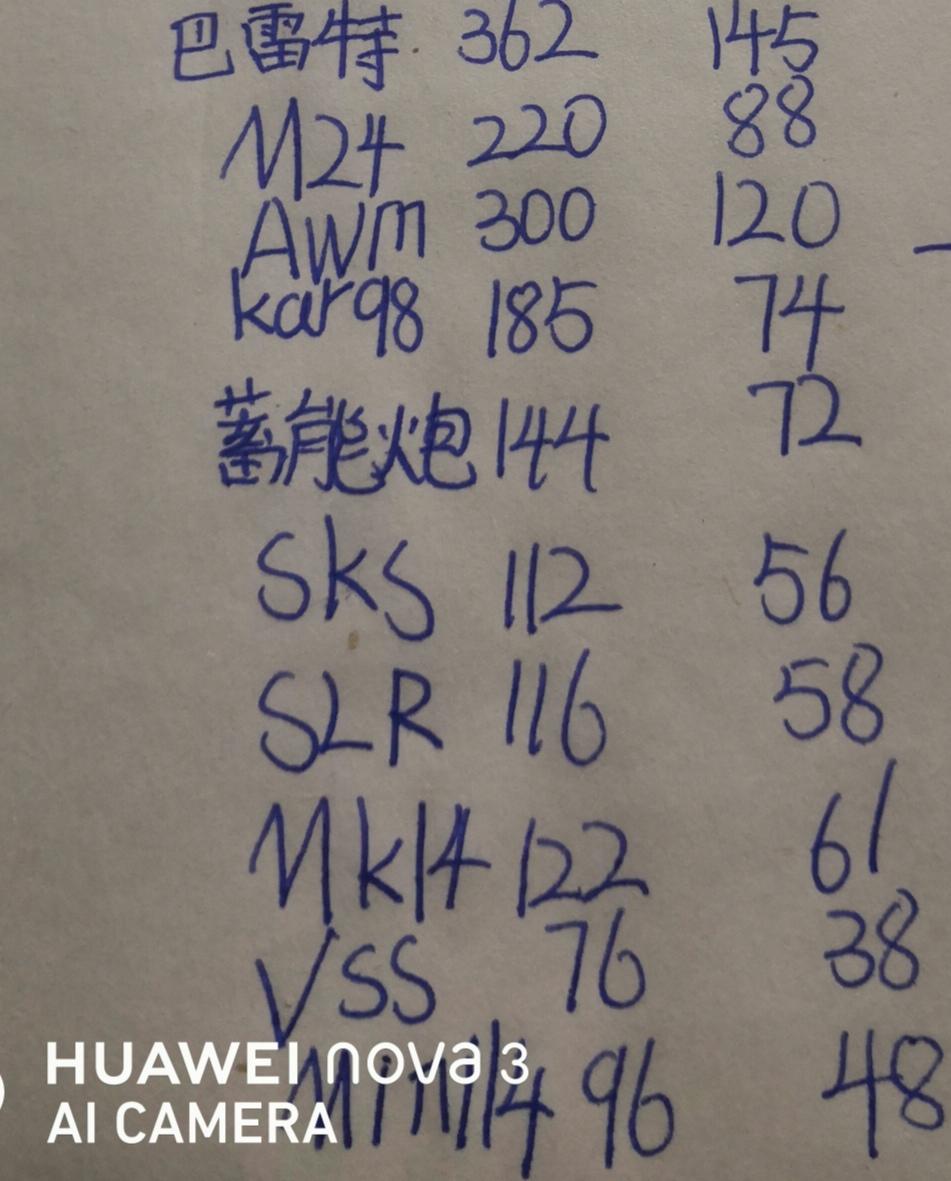 巴雷特 362 145
M24 220 88
AWm 300 120
kar98 185 74
蓄能炮 144 72
SKS 112 56
SLR 116 58
Mk14 122 61
VSS 76 38
Mini14 96 48
HUAWEI nova 3
AI CAMERA